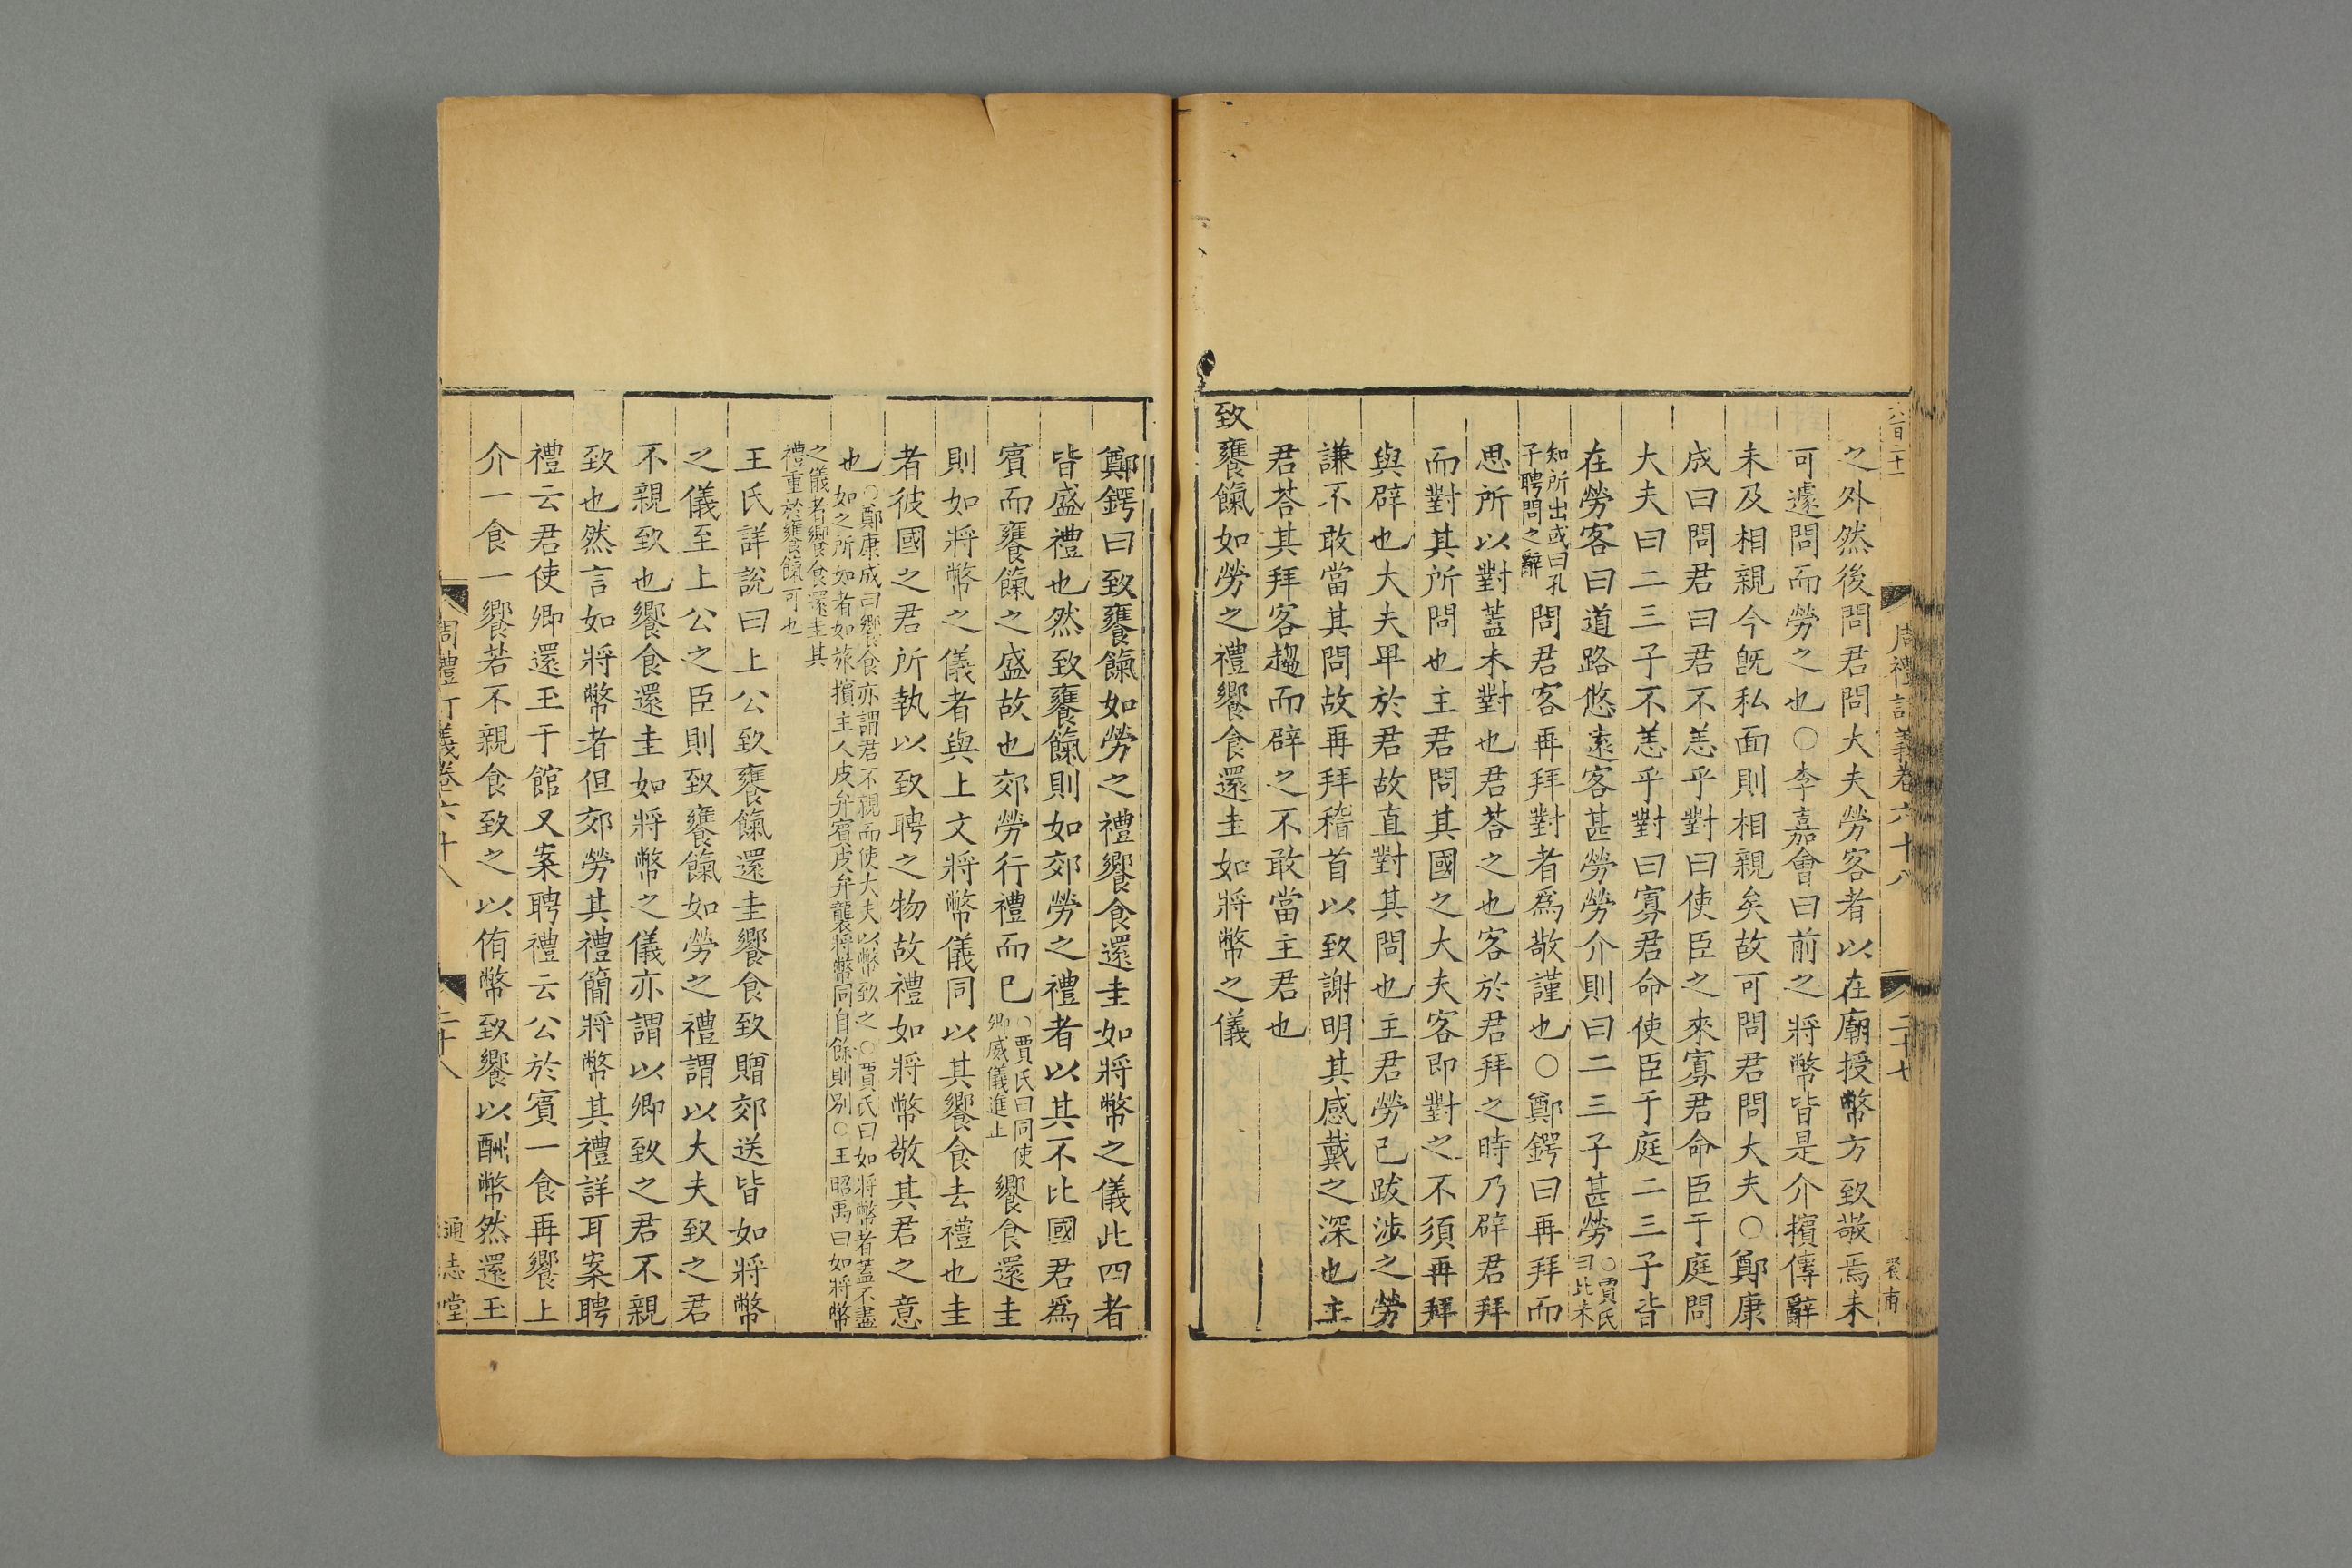 周禮訂義卷六十八 二十七
之外然後問君問大夫勞客者以在廟授幣方致敬焉未
可遽問而勞之也○李嘉會曰前之將幣皆是介擯傳辭
未及相親今旣私面則相親矣故可問君問大夫○鄭康
成曰問君曰君不恙乎對曰使臣之來寡君命臣于庭問
大夫曰二三子不恙乎對曰寡君命使臣于庭二三子皆
在勞客曰道路悠遠客甚勞勞介則曰二三子甚勞○賈氏曰此未
知所出或曰孔子聘問之辭問君客再拜對者爲敬謹也○鄭鍔曰再拜而
思所以對蓋未對也君荅之也客於君拜之時乃辟君拜
而對其所問也主君問其國之大夫客即對之不須再拜
與辟也大夫卑於君故直對其問也主君勞己跋涉之勞
謙不敢當其問故再拜稽首以致謝明其感戴之深也主
君荅其拜客趨而辟之不敢當主君也
致饔餼如勞之禮饗食還圭如將幣之儀
鄭鍔曰致饔餼如勞之禮饗食還圭如將幣之儀此四者
皆盛禮也然致饔餼則如郊勞之禮者以其不比國君爲
賓而饔餼之盛故也郊勞行禮而已○賈氏曰同使卿威儀進止饗食還圭
則如將幣之儀者與上文將幣儀同以其饗食去禮也圭
者彼國之君所執以致聘之物故禮如將幣敬其君之意
也○鄭康成曰饗食亦謂君不親而使大夫以幣致之○賈氏曰如將幣者蓋不盡如之所如者如旅擯主人皮弁賓皮弁襲將幣同自餘則別○王昭禹曰如將幣
之儀者饗食還圭其禮重於饔餼可也
王氏詳說曰上公致饔餼還圭饗食致贈郊送皆如將幣
之儀至上公之臣則致饔餼如勞之禮謂以大夫致之君
不親致也饗食還圭如將幣之儀亦謂以卿致之君不親
致也然言如將幣者但郊勞其禮簡將幣其禮詳耳案聘
禮云君使卿還玉于館又案聘禮云公於賓一食再饗上
介一食一饗若不親食致之以侑幣致饗以酬幣然還玉
周禮訂義卷六十八 二十八 通志堂